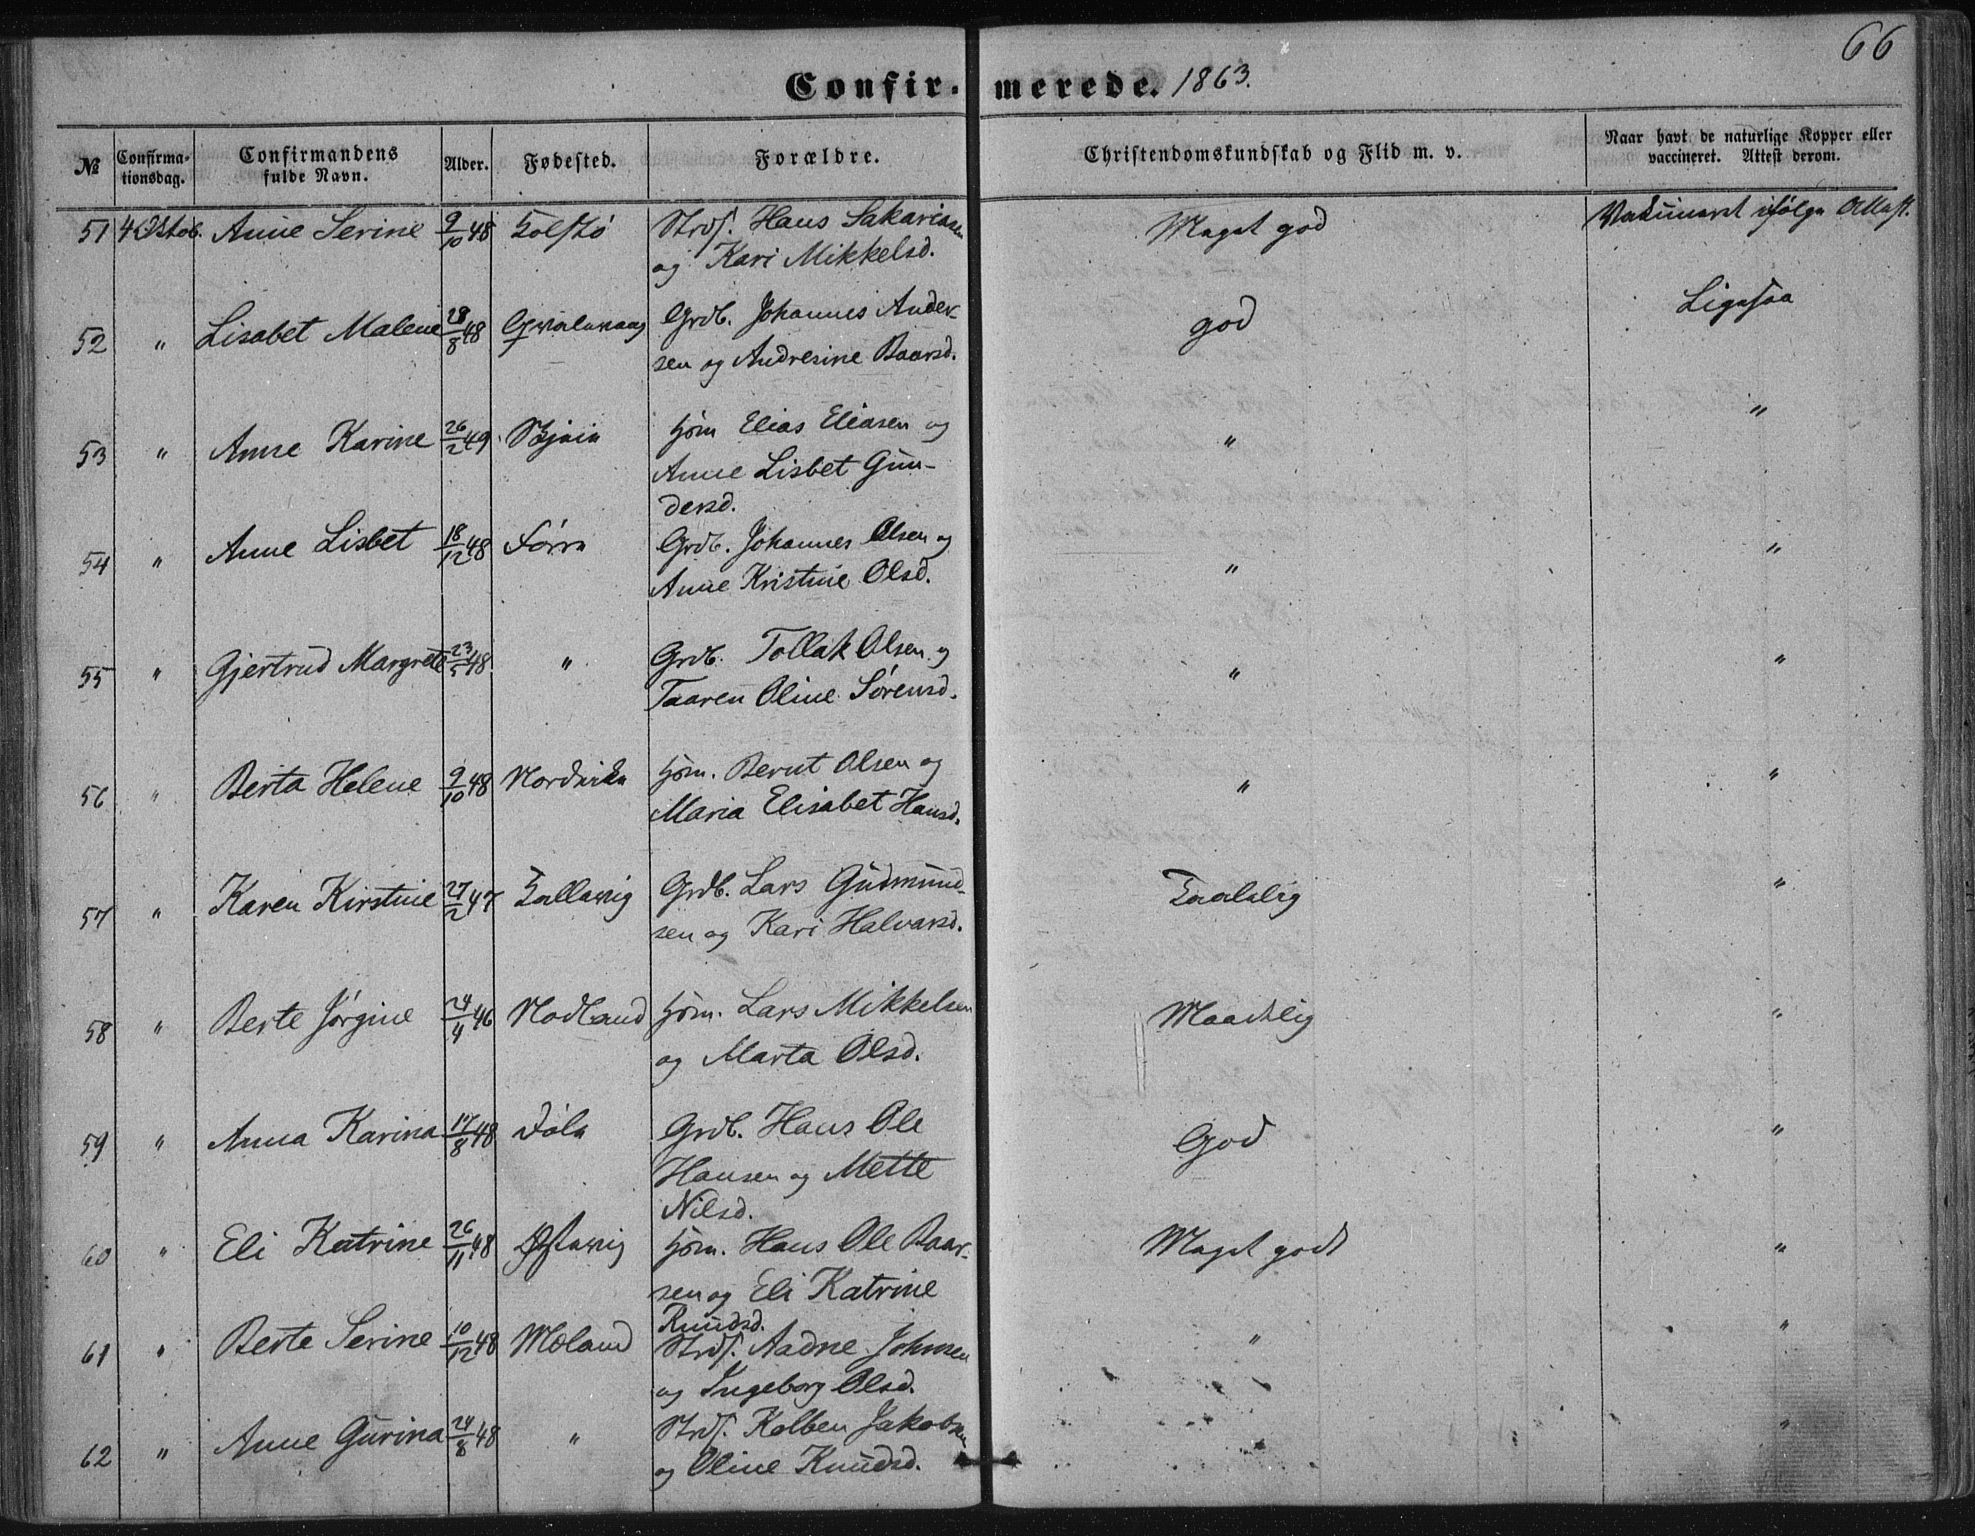 66
Confirmerede. 1863.
№ Confirmationsdag. Confirmandens fulde Navn. Alder. Fødested. Forældre. Christendomskundskab og Flid m. v. Naar havt de naturlige Kopper eller vaccineret. Attest derom.
51 4 Oktob. Anne Serine 9/10 48 Strdf. Hans Sakariasen Meget god Vaksineret ifølge Attest.
og Kari Mikkelsd.
52 " Lisabet Malene 28/8 48 Grdb. Johannes Ander- god Ligesaa
sen og Andresine Baarsd.
53 " Anne Karine 26/2 49 Hjm Elias Eliasen og " "
Anne Lisbet Gun-
dersd.
54 " Anne Lisbet 18/12 48 Førre Grdb. Johannes Olsen og " "
Anne Kristine Olsd.
55 " Gjertrud Margrete 23/5 48 " Grdb. Tollak Olsen og " "
Taaren Oline Sørensd.
56 " Berta Helene 9/10 48 Nordvike Hjm. Bernt Olsen og " "
Maria Elisabet Hansd.
57 " Karen Kirstine 27/2 47 Grdb. Lars Gudmund- Taalelig "
sen og Kari Halvarsd.
58 " Berte Jørgine 24/4 46 Nodland Hjm. Lars Mikkelsen Maadelig "
og Marta Olsd.
59 " Anna Karina 17/8 48 Grdb. Hans Ole God "
Hansen og Mette
Nilsd.
60 " Eli Katrine 26/11 48 Hjm. Hans Ole Baar- Meget godt "
sen og Eli Katrine
Knudsd.
61 " Berte Serine 10/12 48 Moland Strdf. Aadne Johnsen " "
og Ingeborg Olsd.
62 " Anne Gurina 24/8 48 " Strdf. Kolben Jakobsen "
og Oline Knudsd.